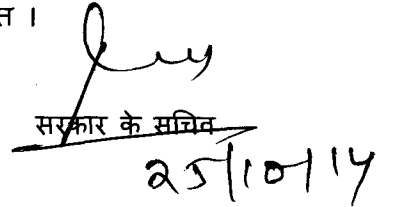 सरकार के सचिव
25/10/14